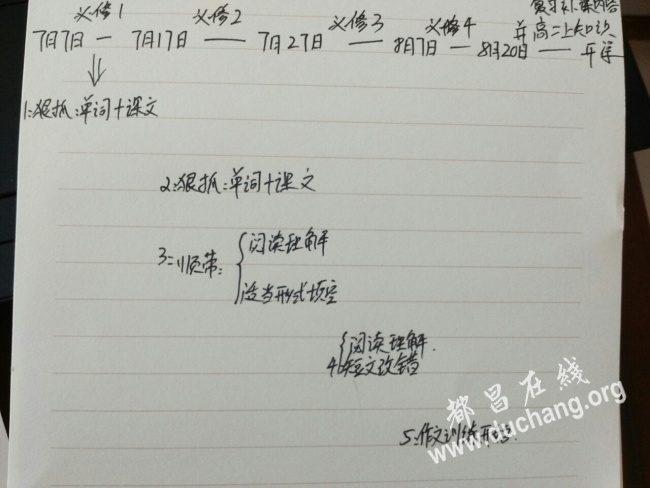 必修1 必修2 必修3 必修4 复习补课内容
并高二上知识
7月7日 — 7月17日 — 7月27日 — 8月7日 — 8月20日 — 开学
1:狠抓:单词+课文
2:狠抓:单词+课文
3:顺带: 阅读理解
适当形式填空
阅读理解.
4 短文改错
5:作文训练
都昌在线
www.duchang.org